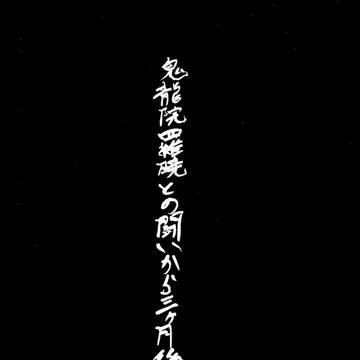 鬼龍院羅暁との闘いから三ヶ月後